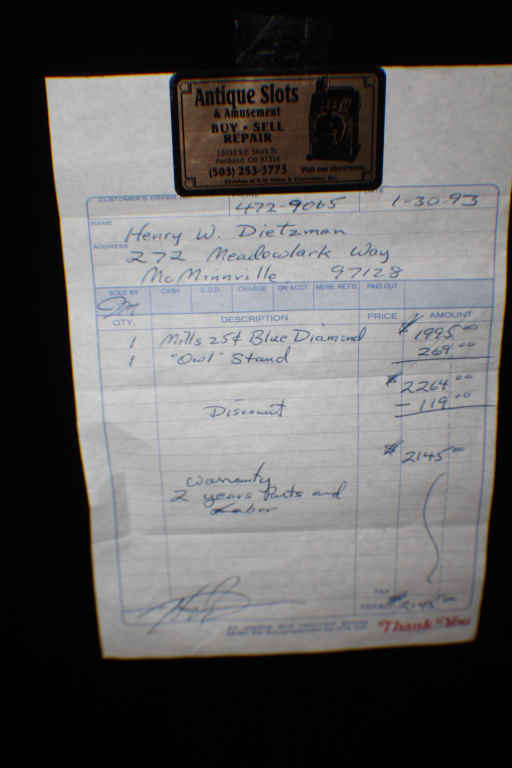 Antique Slots
& Amusement
BUY • SELL
REPAIR
Portland, OR
(503) 253-3773
CUSTOMER'S ORDER
472-9065 1-30-93
NAME Henry W. Dietzman
ADDRESS 272 Meadowlark Way
McMinnville 97128
SOLD BY CASH C.O.D. CHARGE ON ACCT. MDSE. RETD. PAID OUT
QTY. DESCRIPTION PRICE AMOUNT
1 Mills 25¢ Blue Diamond $ 1995 00
1 "Owl" Stand 269 00
$ 2264 00
Discount - 119 00
$ 2145 00
Warranty
2 years Parts and
Labor
TAX
TOTAL $ 2145 00
Thank You